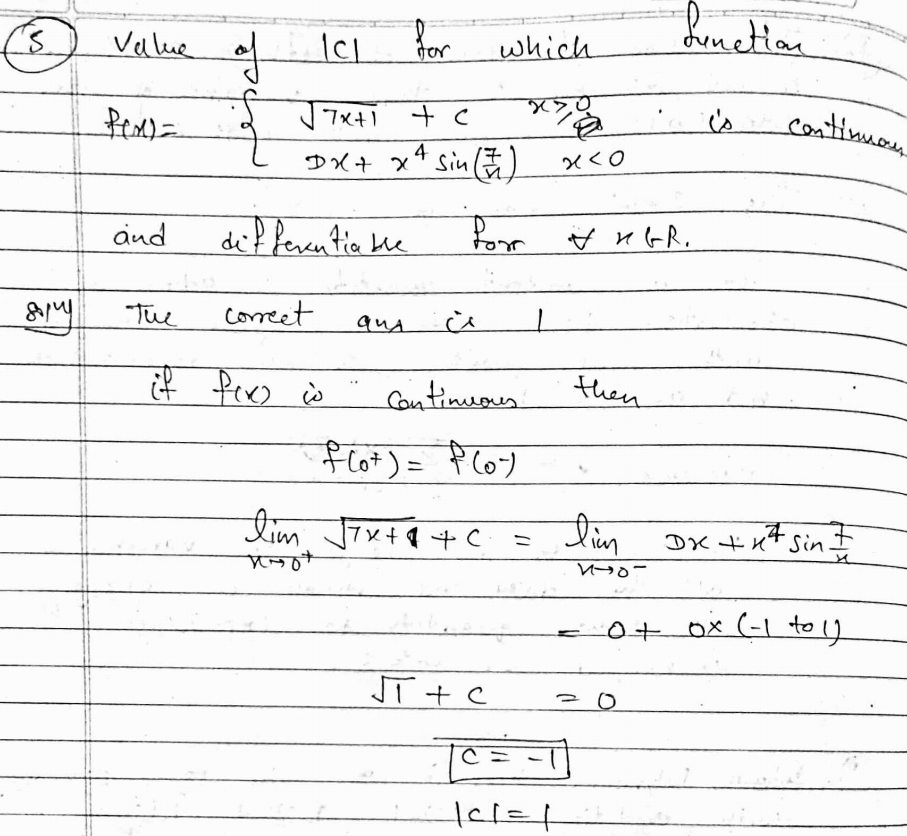 5 Value of |c| for which function
f(x) = { √7x+1 + c x≥0 is continuous
Dx + x⁴ sin(7/x) x<0
and differentiable for ∀ x∈R.
The correct ans is 1
if f(x) is continuous then
f(0⁺) = f(0⁻)
lim x→0⁺ √7x+1 + c = lim x→0⁻ Dx + x⁴ sin 7/x
= 0 + 0x (-1 to 1)
√1 + c = 0
c = -1
|c| = 1